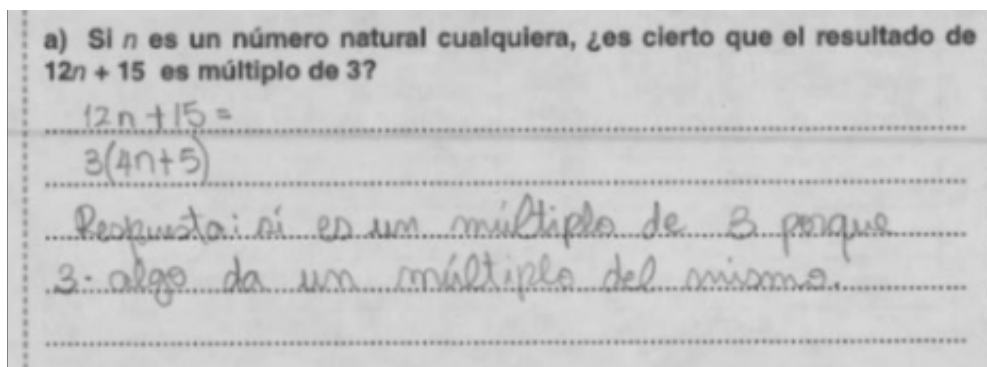 a) Si n es un número natural cualquiera, ¿es cierto que el resultado de
12n + 15 es múltiplo de 3?
12n + 15 =
3(4n+5)
Respuesta: sí es un múltiplo de 3 porque
3 · algo da un múltiplo del mismo.